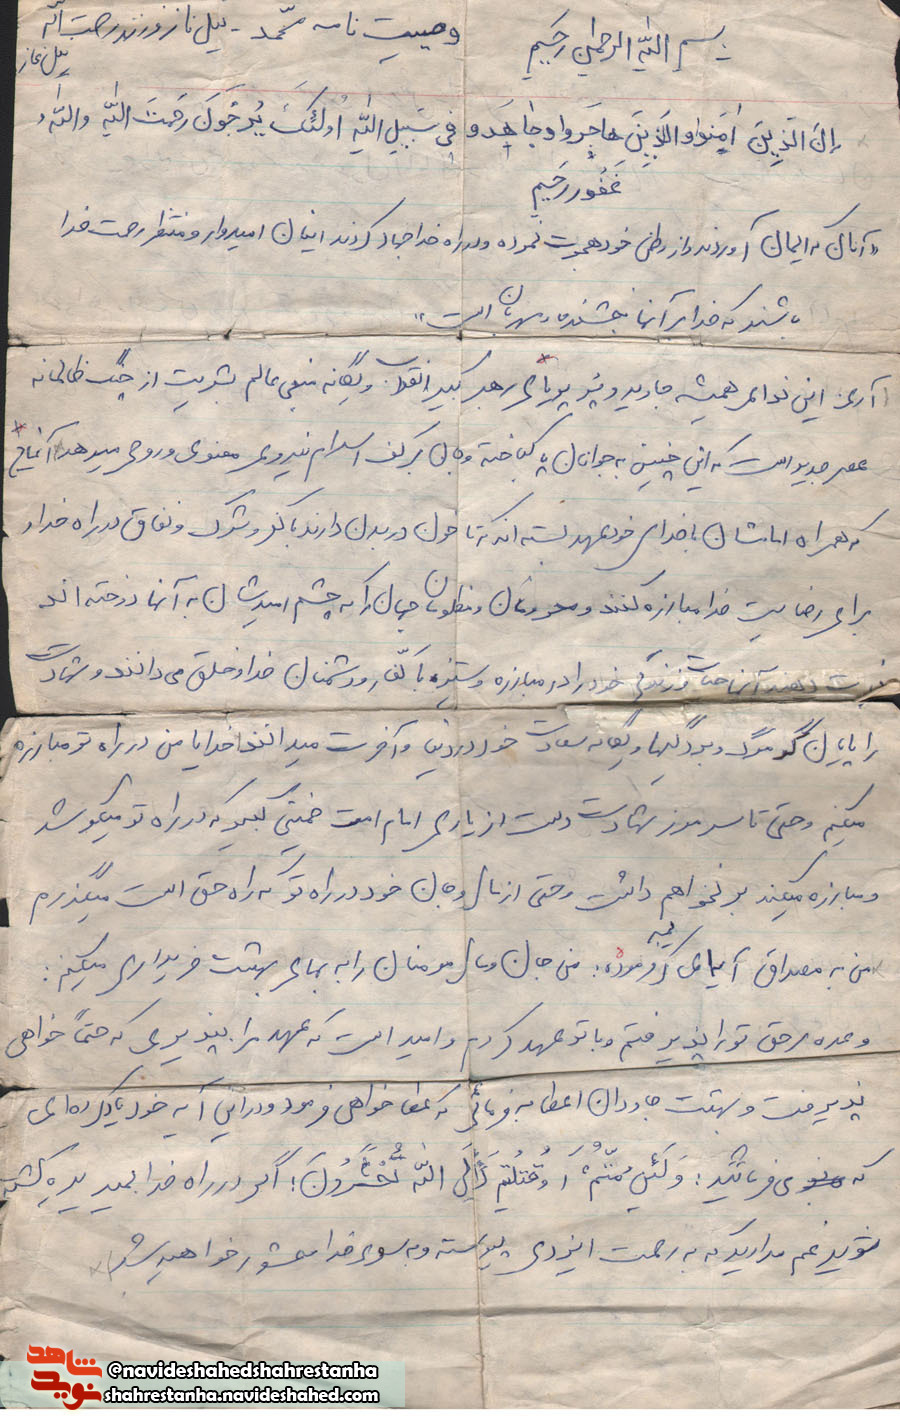 بسم الله الرحمان رحیم
وصیت نامه محمد - بیل ناز فرزند رحمت الله
بیل ناز
إن الَّذِینَ اٰمَنُوا و الَّذِینَ هاجَروا و جاهَدو فی سَبیل اللّٰه اُولئِکَ یُرجُونَ رَحمَتَ اللّٰهِ و اللّٰهُ
غَفُور رَحیم
«آنان که ایمان آوردند و از وطن خود هجرت نموده و در راه خدا جهاد کردند اینان امیدوار و منتظر رحمت خدا
باشند که خدا بر آنها بخشنده و مهربان است»
آری این ندای همیشه جاوید و پویای رهبر کبیر انقلاب و یگانه منجی عالم بشریت از چنگ ظالمانه
عصر جدید است که این چنین به جوانان پاکباخته و جان بر کف اسلام نیروی معنوی و روحی میدهد آنهایی
که همراه امامشان با خدای خود عهد بسته اند که تا خون در بدن دارند با کفر و شرک و نفاق در راه خدا و
برای رضایت خدا مبارزه کنند و محرومان و مظلومان جهان را که چشم امیدشان به آنها دوخته اند
نجات دهند آنها حیات و زندگی خود را در مبارزه و ستیز با کفار و دشمنان خدا و خلق می دانند و شهادت
را پایان گر مرگ و بردگیها و یگانه سعادت خود در دنیا و آخرت میدانند خدایا من در راه تو مبارزه
میکنم و حتی تا سر مرز شهادت دست از یاری امام امت خمینی کبیر که در راه تو میکوشد
و مبارزه میکند بر نخواهم داشت و حتی از مال و جان خود در راه تو که راه حق است میگذرم
من به مصداق آیه‌ای که فرموده: من جان و مال مومنان را به بهای بهشت خریداری میکنم:
وعده بر حق تو را پذیرفتم و با تو عهد کردم و امید است که عهد مرا بپذیری که حتماً خواهی
پذیرفت و بهشت جاودان اعطا بفرمائی که عطا خواهی فرمود و در این آیه خود یاد کرده ای
که می فرمائید: وَلَئِن مُتُّم اَو قُتِلتُم لَإِلَی اللّٰه تُحشَرُونَ: اگر در راه خدا بمیرید یا کشته
شوید غم مدارید که به رحمت ایزدی پیوسته و به سوی خدا محشور خواهید شد
شاهد
نوید
@navideshahedshahrestanha
shahrestanha.navideshahed.com